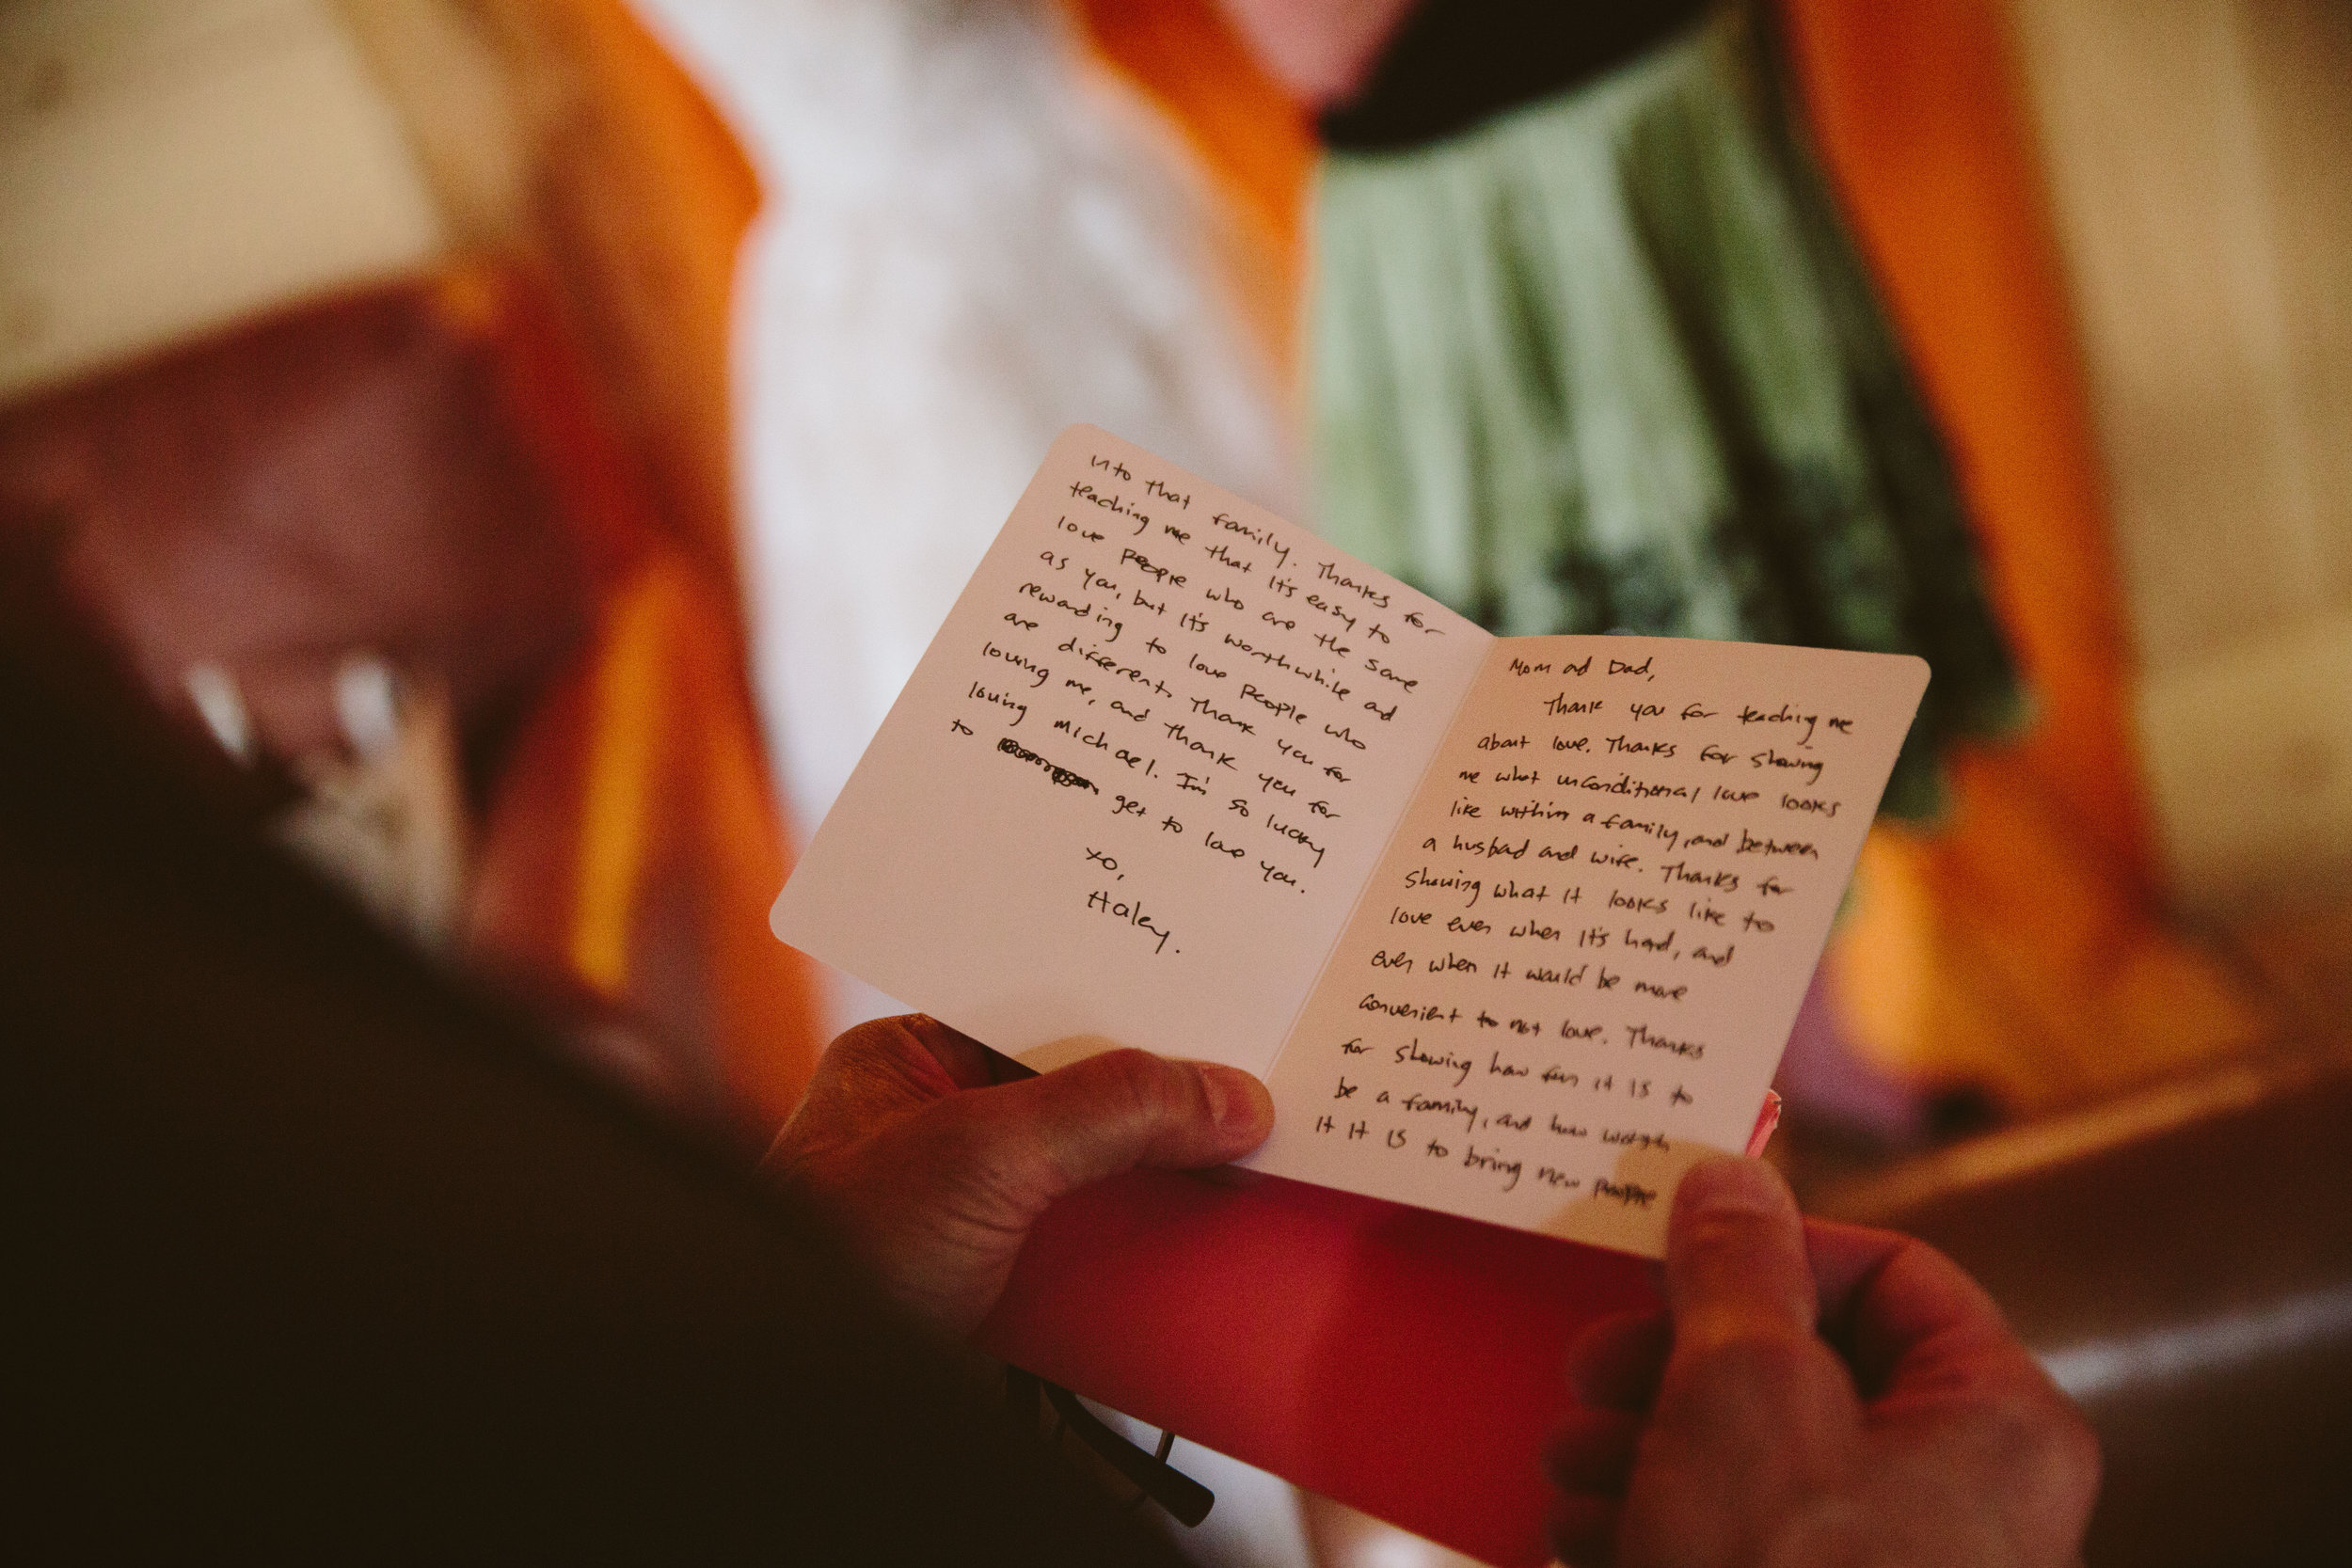 Mom and Dad,
Thank you for teaching me
about love. Thanks for showing
me what unconditional love looks
like within a family, and between
a husband and wife. Thanks for
showing what it looks like to
love even when it's hard, and
even when it would be more
convenient to not love. Thanks
for showing how fun it is to
be a family, and how worth
it it is to bring new people
into that family. Thanks for
teaching me that it's easy to
love people who are the same
as you, but it's worthwhile and
rewarding to love people who
are different. Thank you for
loving me, and thank you for
loving Michael. I'm so lucky
to get to love you.
xo,
Haley.